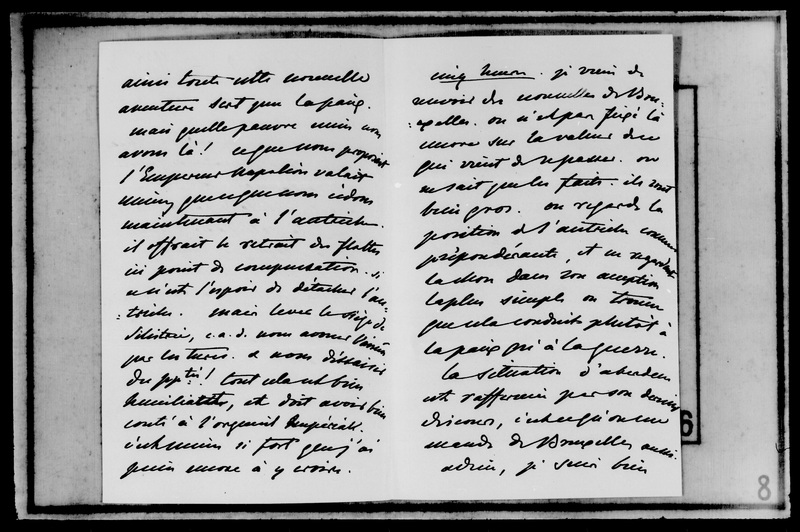 ainsi toute cette nouvelle
aventure soit que la paix.
mais quelle pauvre mine nous
avons là! ce que nous proposait
l'Empereur Napoléon valait
mieux que ce que nous cédons
maintenant à l'autriche.
il offrait le retrait des flottes
ici point de compensation. si
ce n'est l'espoir de détacher l'au-
:triche. mais lever le siège de
Silistrie, c. a. d. nous avouer vaincus
par les turcs. & nous dessaisir
des pptés! tout cela est bien
humiliant, et doit avoir bien
couté à l'orgueil Impérial.
c'est même si fort que j'ai
peine encore à y croire.
cinq heures. je viens de
recevoir des nouvelles de Bru-
:xelles. on n'est pas fixé là
encore sur la valeur de ce
qui vient de se passer. on
ne sait que les faits. ils sont
bien gros. on regarde la
position de l'autriche comme
prépondérante, et en regardant
la chose dans son acception
la plus simple on trouve
que cela conduit plutôt à
la paix qu'à la guerre.
la situation d'aberdeen
est raffermie par son dernier
discours, c'est ce qu'on me
mande de Bruxelles aussi.
adieu, je suis bien
6
8